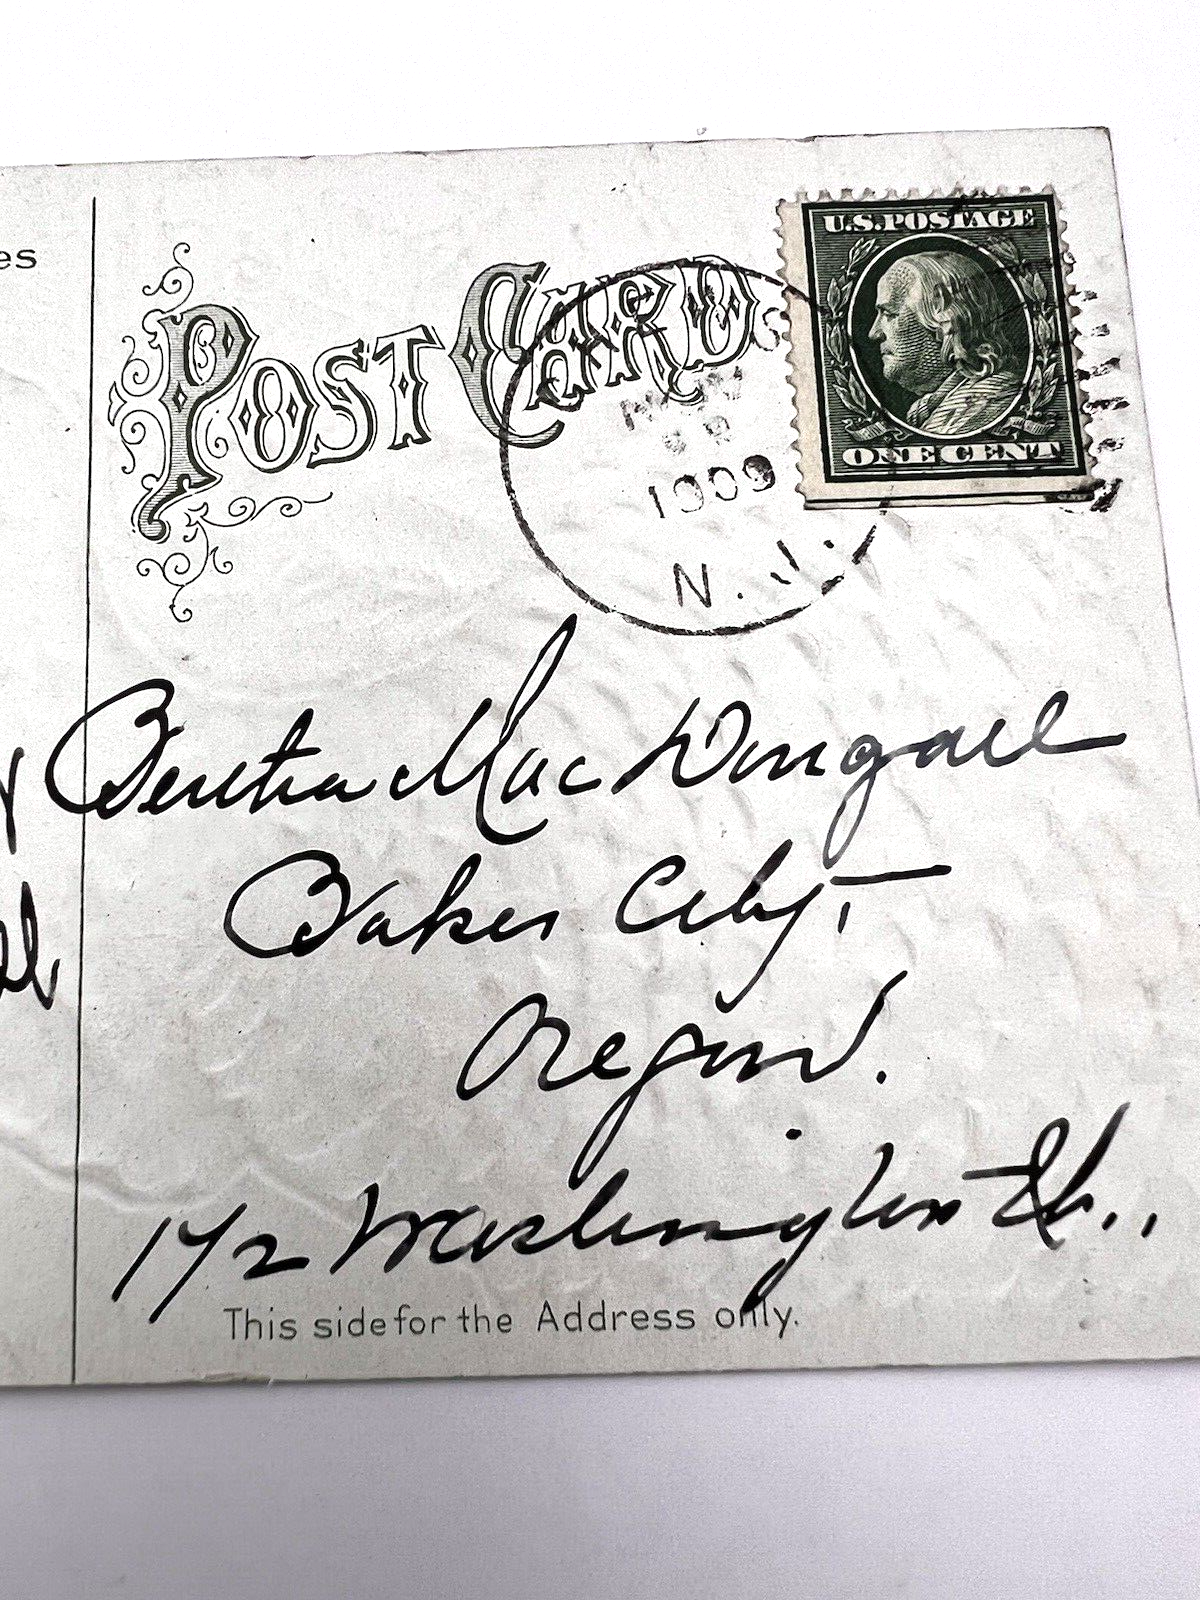 es
POST CARD
U.S. POSTAGE
ONE CENT
1909
N. J.
Bertha MacDougall
Baker City
Oregon.
1712 Washington St.
This side for the Address only.